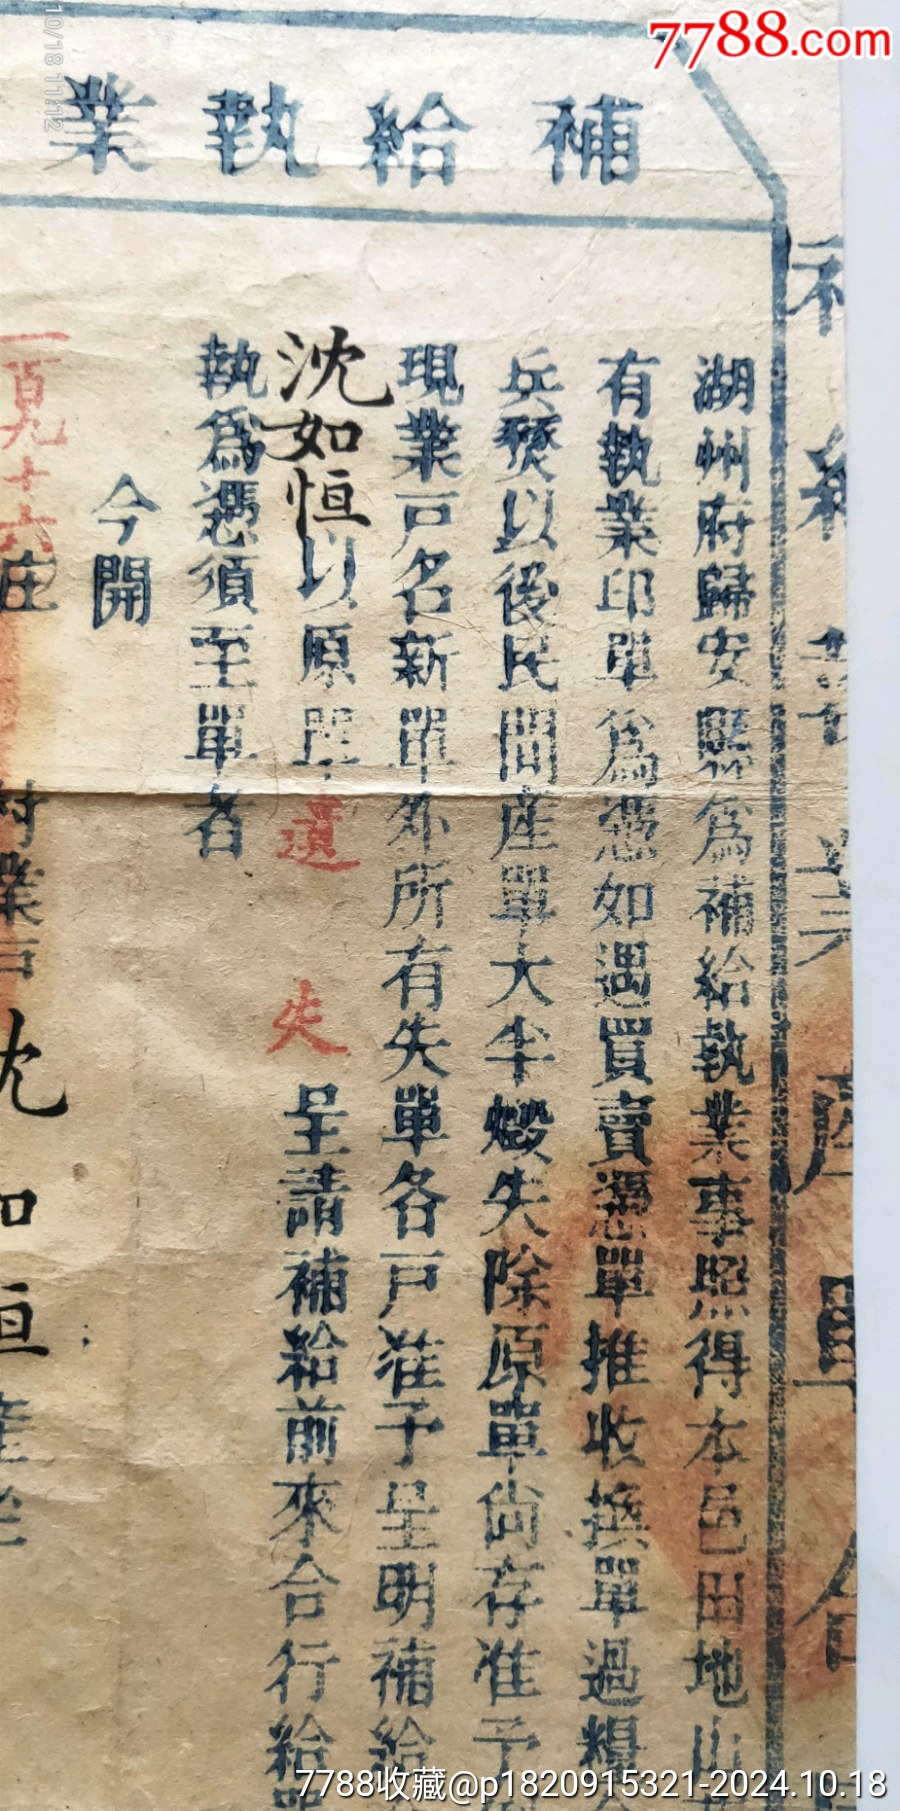 7788.com
10/18 11:12
補給執業
湖州府歸安縣為補給執業事照得本邑田地山
有執業印單為憑如遇買賣憑單推收換單過糧
兵燹以後民間產單大半燬失除原單尚存准予
現業戶名新單外所有失單各戶准予呈明補給
沈如恒以原單遺失呈請補給前來合行給
執為憑須至單者
今開
一百九十六庄
村業戶沈如恒產坐
補給執業產單
7788收藏@p1820915321-2024.10.18